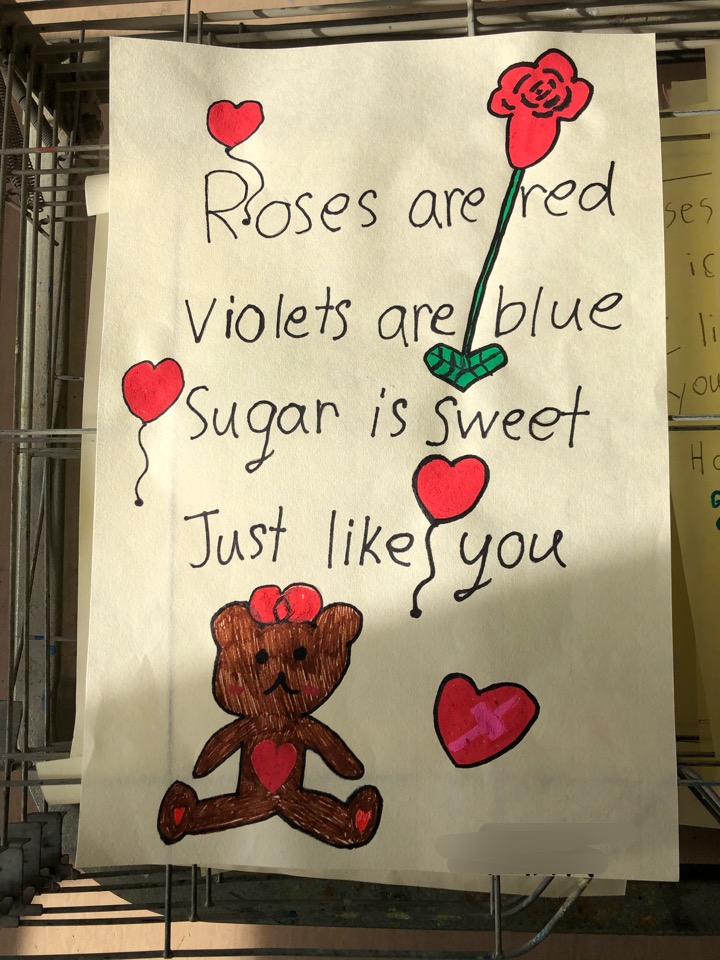 Roses are red
violets are blue
Sugar is sweet
Just like you
ses
is
li
you
Ho